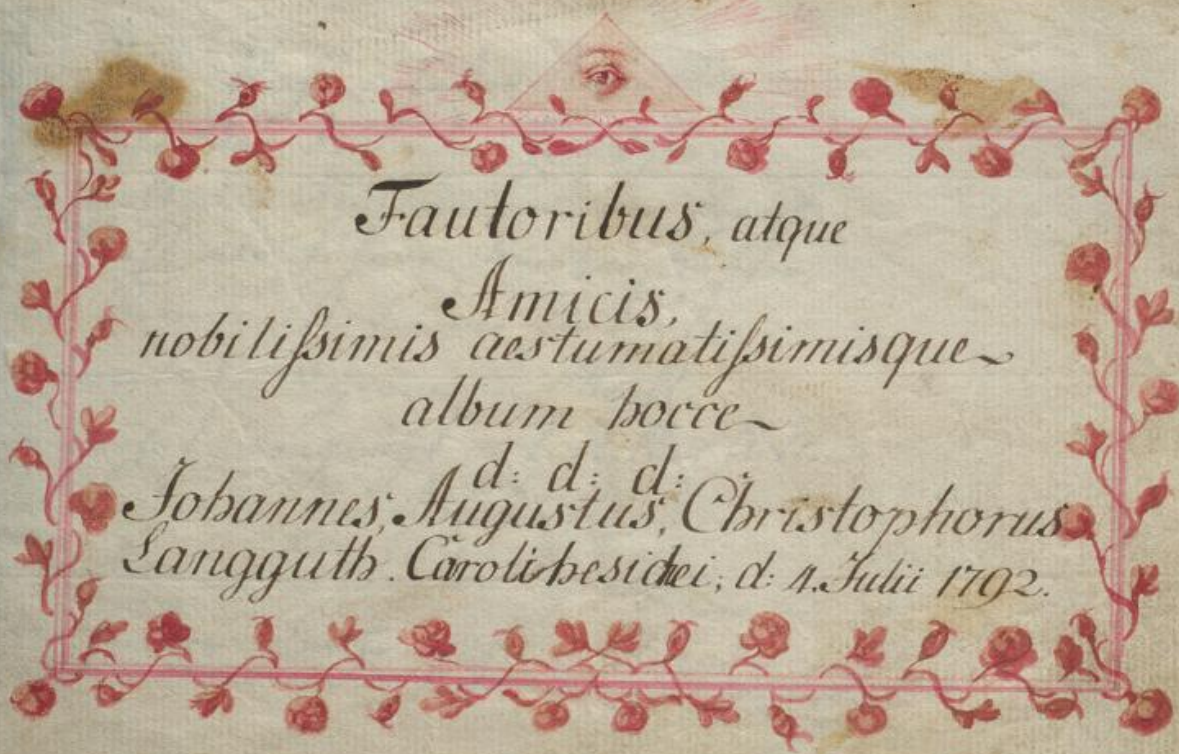 Fautoribus, atque
Amicis,
nobiliſsimis aestumatiſsimisque
album hocce
d: d: d:
Johannes, Augustus, Christophorus
Langguth. Carolihesidei, d: 4. Julii 1792.